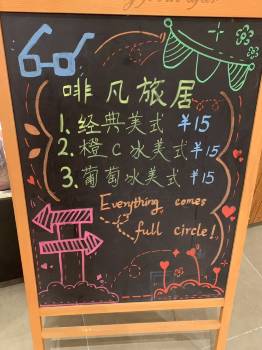 啡凡旅居
1.经典美式 ¥15
2.橙C冰美式 ¥15
3.葡萄冰美式 ¥15
Everything comes
full circle!